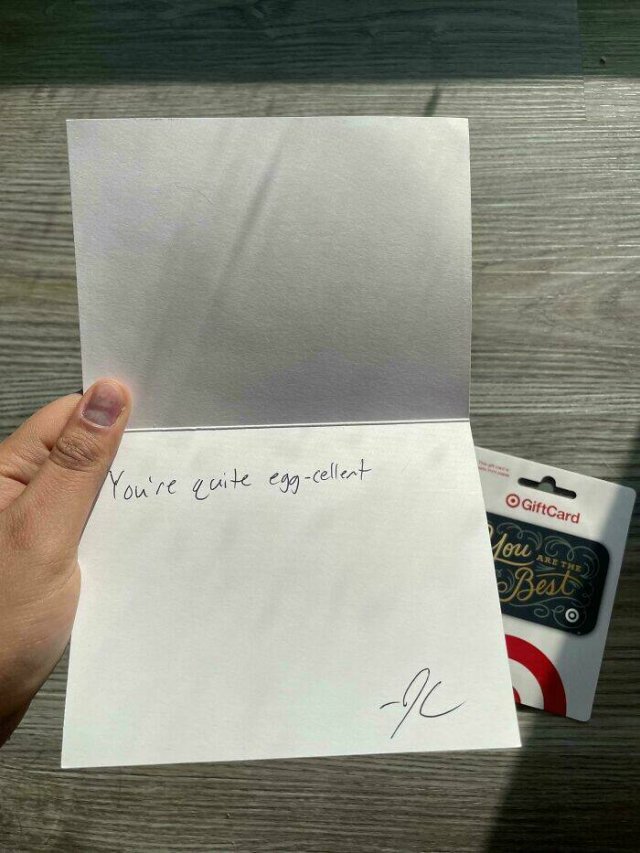 You're quite egg-cellent
-JC
GiftCard
You ARE THE
Best